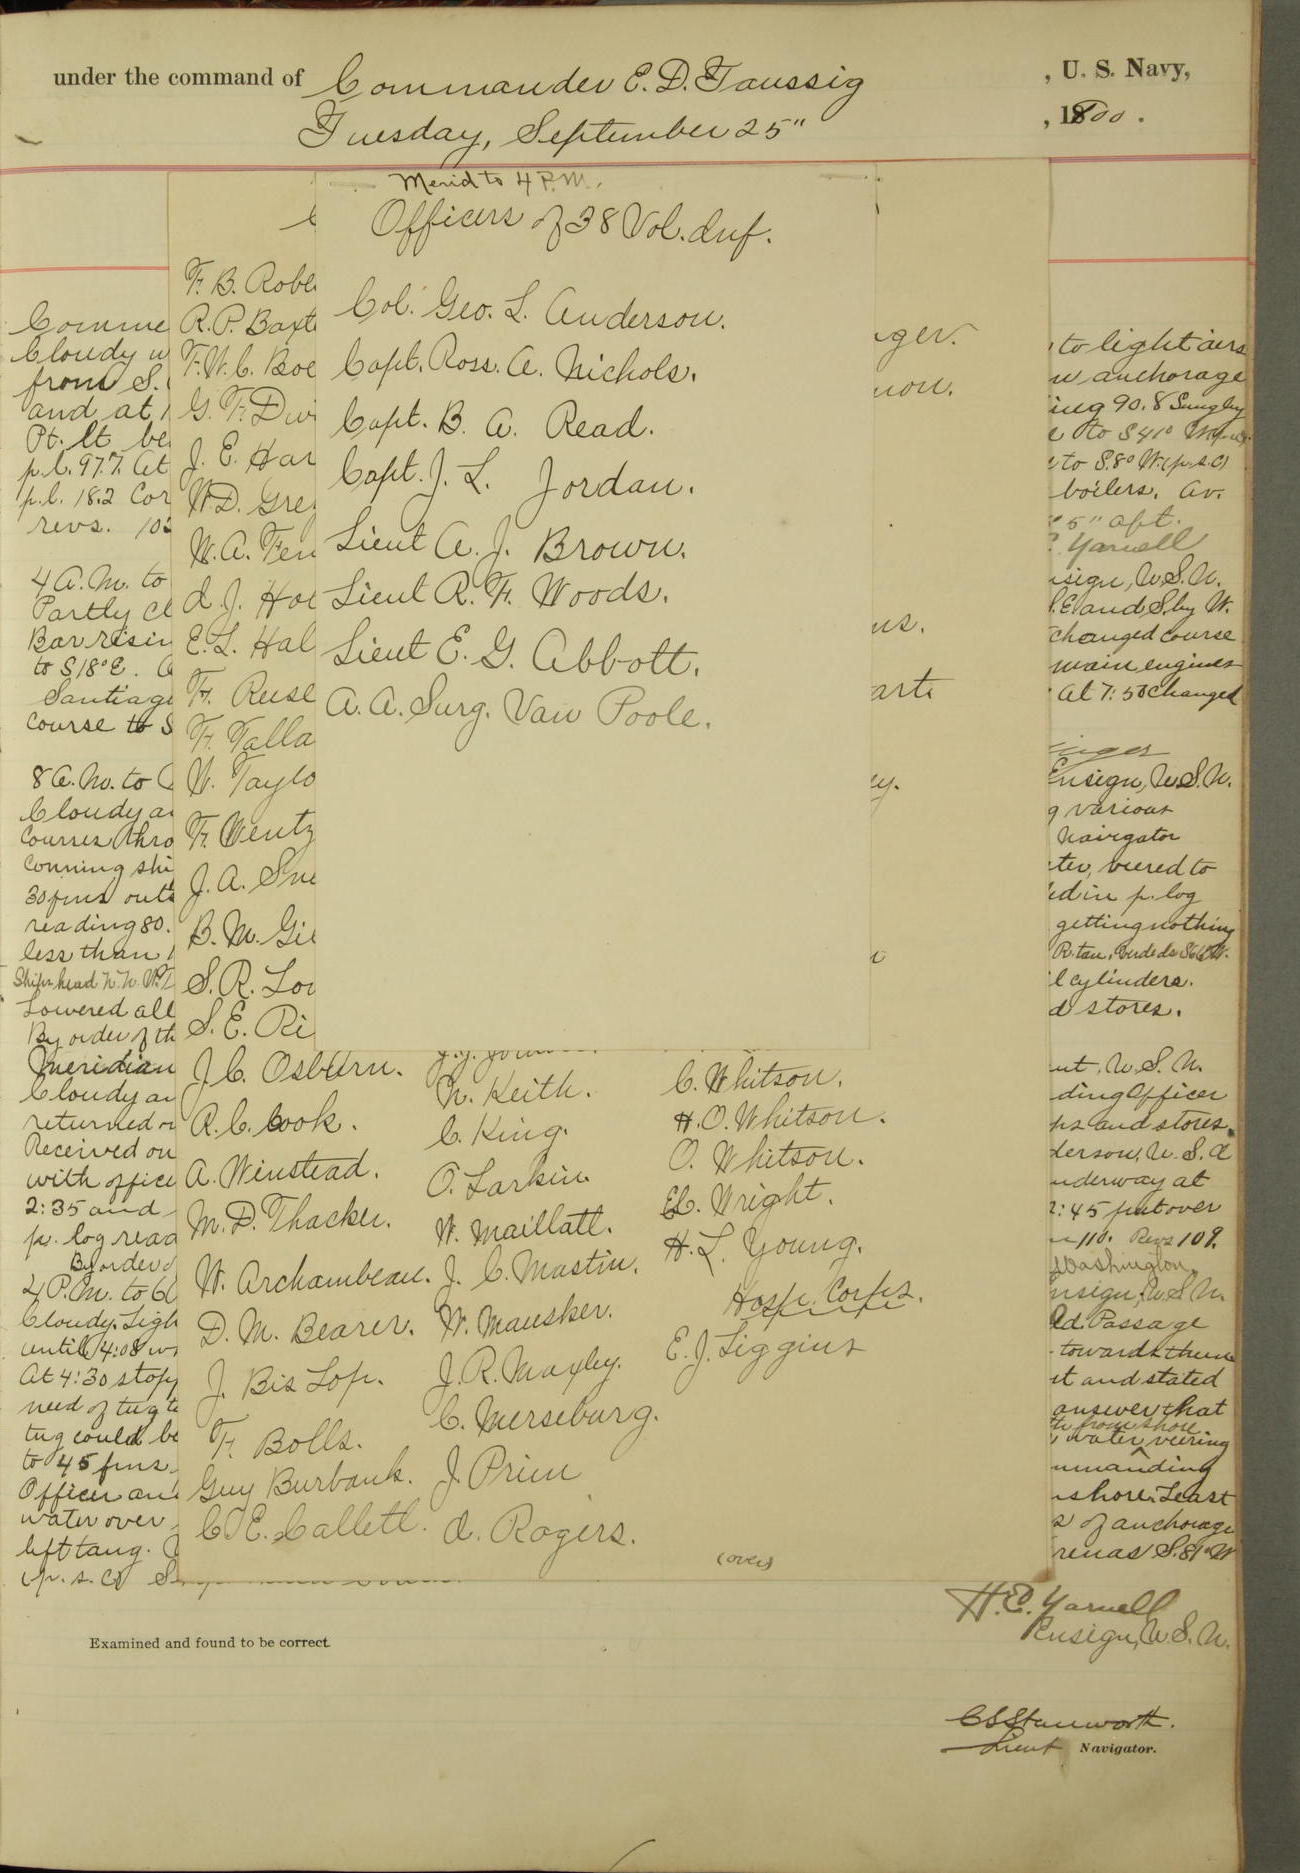 under the command of Commander E. D. Taussig, U. S. Navy,
Tuesday, September 25", 1900.
Merid to 4 P.M.
Officers of 38 Vol. Inf.
Col. Geo. L. Anderson.
Capt. Ross. A. Nichols.
Capt. B. A. Read.
Capt. J. L. Jordan.
Lieut A. J. Brown.
Lieut R. F. Woods.
Lieut E. G. Abbott.
A. A. Surg. Van Poole.
F. B. Robe
R. P. Baxt
F. W. C. Boe
G. F. Dwi
J. E. Har
W. D. Gre
W. A. Fen
I. J. Hol
E. L. Hal
F. Reuse
F. Talla
W. Taylo
F. Wentz
J. A. Sne
B. M. Gil
S. R. Lou
S. E. Ri
J. C. Osburn.
R. C. Cook.
A. Winstead.
M. D. Thacker.
W. Archambeau.
D. M. Bearer.
J. Bis Lop.
F. Bolls.
Guy Burbank.
C. E. Callett.
N. Keith.
C. King.
O. Larkin.
W. Maillatt.
J. C. Mastin.
W. Mausker.
J. R. Maxley.
C. Merseburg.
J. Prim
A. Rogers.
ger.
non.
ns.
arts
ey.
C. Whitson.
H. O. Whitson.
O. Whitson.
E. Wright.
H. L. Young.
Hosp. Corps.
E. J. Liggins
(over)
Comme
Cloudy w
from S.
and at 1
Pt. Lt be
p.l. 97.7. At
p.l. 18.2 Cor
revs. 102
4 A.M. to
Partly cl
Bar risin
to S18°E.
Santiago
course to S
8 A.M. to
Cloudy an
courses thro
conning shi
30 fms outs
reading 80.
less than 1
Ships head N.N.W.
Lowered all
By order of th
Meridian
Cloudy an
returned o
Received on
with office
2:35 and
p. log read
By order o
4 P.M. to 6
Cloudy. Ligh
until 4:08 w
At 4:30 stopp
need of tug to
tug could be
to 45 fms.
Officer an
water over
left tang.
to light airs
anchorage
ing 90.8 Sung by
to S41°
to S.8° W. (p.s.c)
boilers. Av.
5" aft.
Yarnell
nsign, U.S.N.
E and S. by W.
changed course
main engines
At 7:50 changed
Ensign, U.S.N.
g various
Navigator
ter, veered to
ed in p. log
getting nothing
l cylinders.
d stores.
nt, U.S.N.
ding Officer
ps and stores.
derson, U.S.A
nderway at
2:45 put over
110. Revs 109.
Washington,
nsign, U.S.N.
Passage
towards them
it and stated
answer that
from shore
water veering
mmanding
nshore. Least
s of anchorage
renas S.81°W
H. E. Yarnell
Ensign, U.S.N.
Examined and found to be correct.
C S Stanworth.
Lieut Navigator.